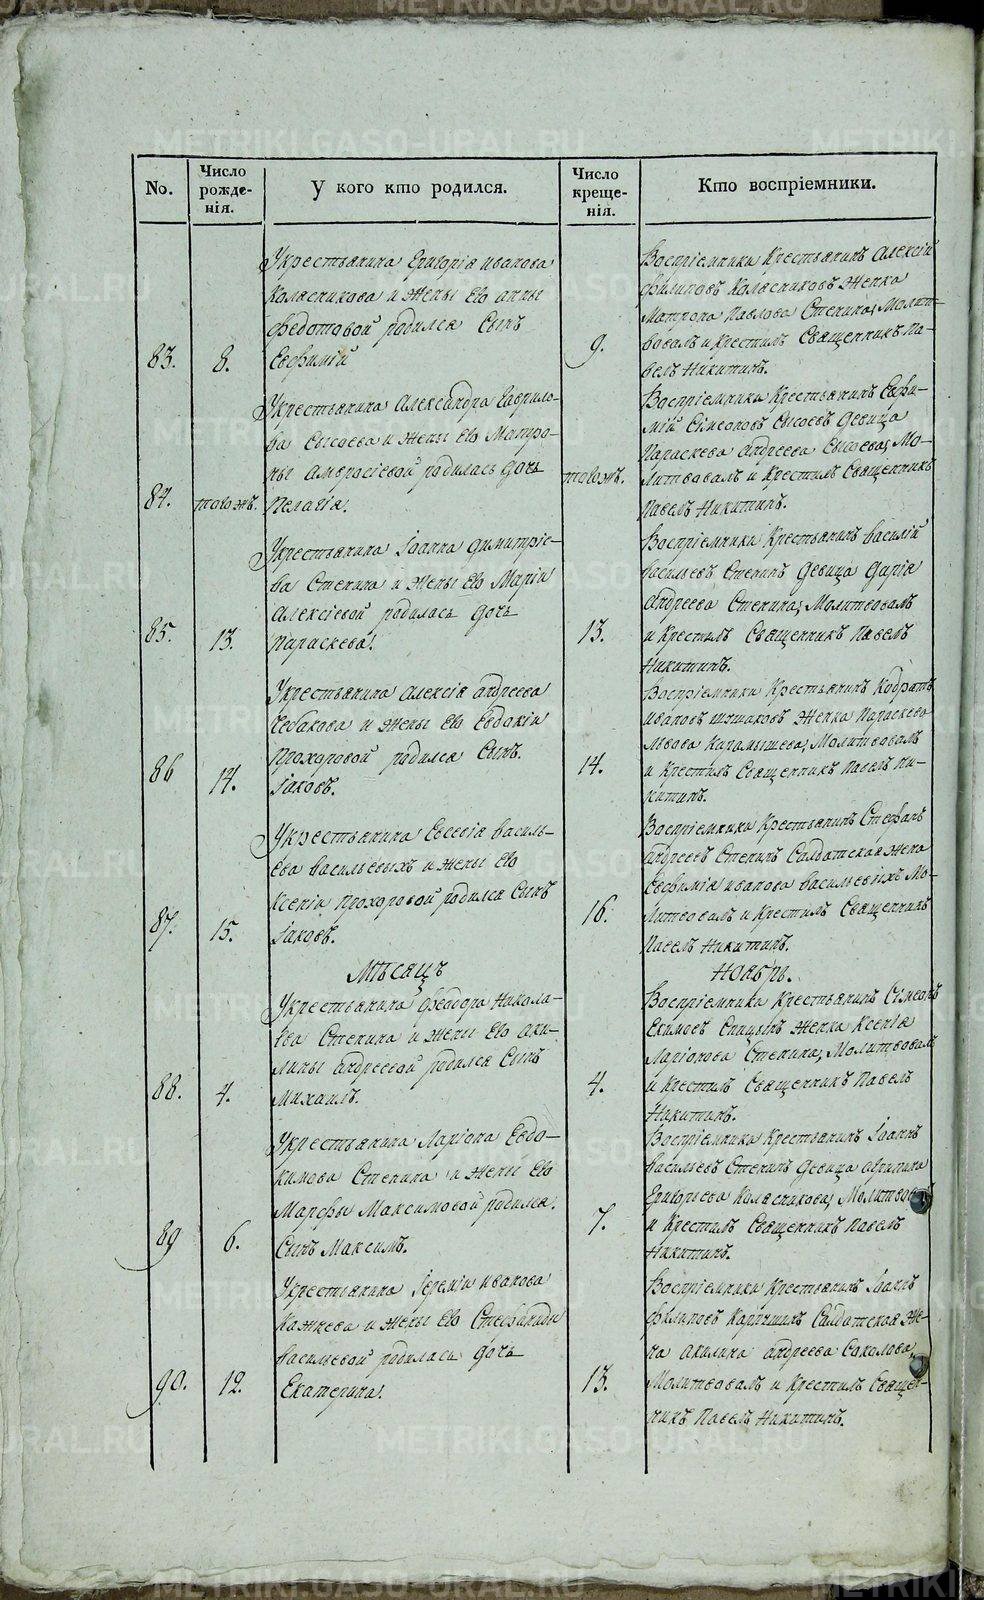 METRIKI.GASO-URAL.RU
No.
Число рожде-нія.
У кого кто родился.
Число креще-нія.
Кто воспріемники.
83.
8.
У крестьянина Григорія Иванова
Колясникова и жены его Анны
Федотовой родился сынъ
Евфимій
9.
Воспріемники крестьянинъ Алексій
Филиповъ Колясниковъ женка
Матрона Павлова Степина; Молит-
вовалъ и крестилъ Священникъ Па-
велъ Никитинъ.
84.
тогожъ.
У крестьянина Александра Гаврило-
ва Сысоева и жены его Матро-
ны Амвросіевой родилась дочь
Пелагія.
тогожъ.
Воспріемники крестьянинъ Евфи-
мій Симеоновъ Сысоевъ девица
Параскева Андреева Сысоева; Мо-
литвовалъ и крестилъ Священникъ
Павелъ Никитинъ.
85.
13.
У крестьянина Іоанна Димитріе-
ва Степина и жены его Маріи
Алексіевой родилась дочь
Параскева.
13.
Воспріемники крестьянинъ Василій
Васильевъ Степинъ девица Дарія
Андреева Степина; Молитвовалъ
и крестилъ Священникъ Павелъ
Никитинъ.
86
14.
У крестьянина Алексія Андреева
Чебакова и жены его Евдокіи
Прохоровой родился сынъ.
Іаковъ.
14.
Воспріемники крестьянинъ Кодратъ
Ивановъ женка Параскева
Львова Карамышева; Молитвовалъ
и крестилъ Священникъ Павелъ Ни-
китинъ.
87.
15.
У крестьянина Евсевія Василь-
ева Васильевыхъ и жены его
Ксеніи Прохоровой родился сынъ
Іаковъ.
16.
Воспріемники крестьянинъ Стефанъ
Андреевъ Степинъ Салдатская жена
Евфимія Иванова Васильевыхъ Мо-
литвовалъ и крестилъ Священникъ
Павелъ Никитинъ.
Мѣсяцъ
Ноябрь.
88.
4.
У крестьянина Феодора Никола-
ева Степина и жены его Аки-
лины Андреевой родился сынъ
Михаилъ.
4.
Воспріемники крестьянинъ Симеонъ
Екимовъ Спицынъ женка Ксенія
Ларіонова Степина; Молитвовалъ
и крестилъ Священникъ Павелъ
Никитинъ.
89
6.
У крестьянина Ларіона Евдо-
кимова Степина и жены его
Марфы Максимовой родился.
сынъ Максимъ.
7.
Воспріемники крестьянинъ Іоаннъ
Васильевъ Степинъ девица Агрипина
Григорьева Колясникова; Молитвовалъ
и крестилъ Священникъ Павелъ
Никитинъ.
90.
12.
У крестьянина Іереміи Иванова
Кажнева и жены его Стефаниды
Васильевой родилась дочь
Екатерина.
13.
Воспріемники крестьянинъ Іоаннъ
Филиповъ Карпушинъ Салдатская же-
на Акилина Андреева Соколова;
Молитвовалъ и крестилъ Священ-
никъ Павелъ Никитинъ.